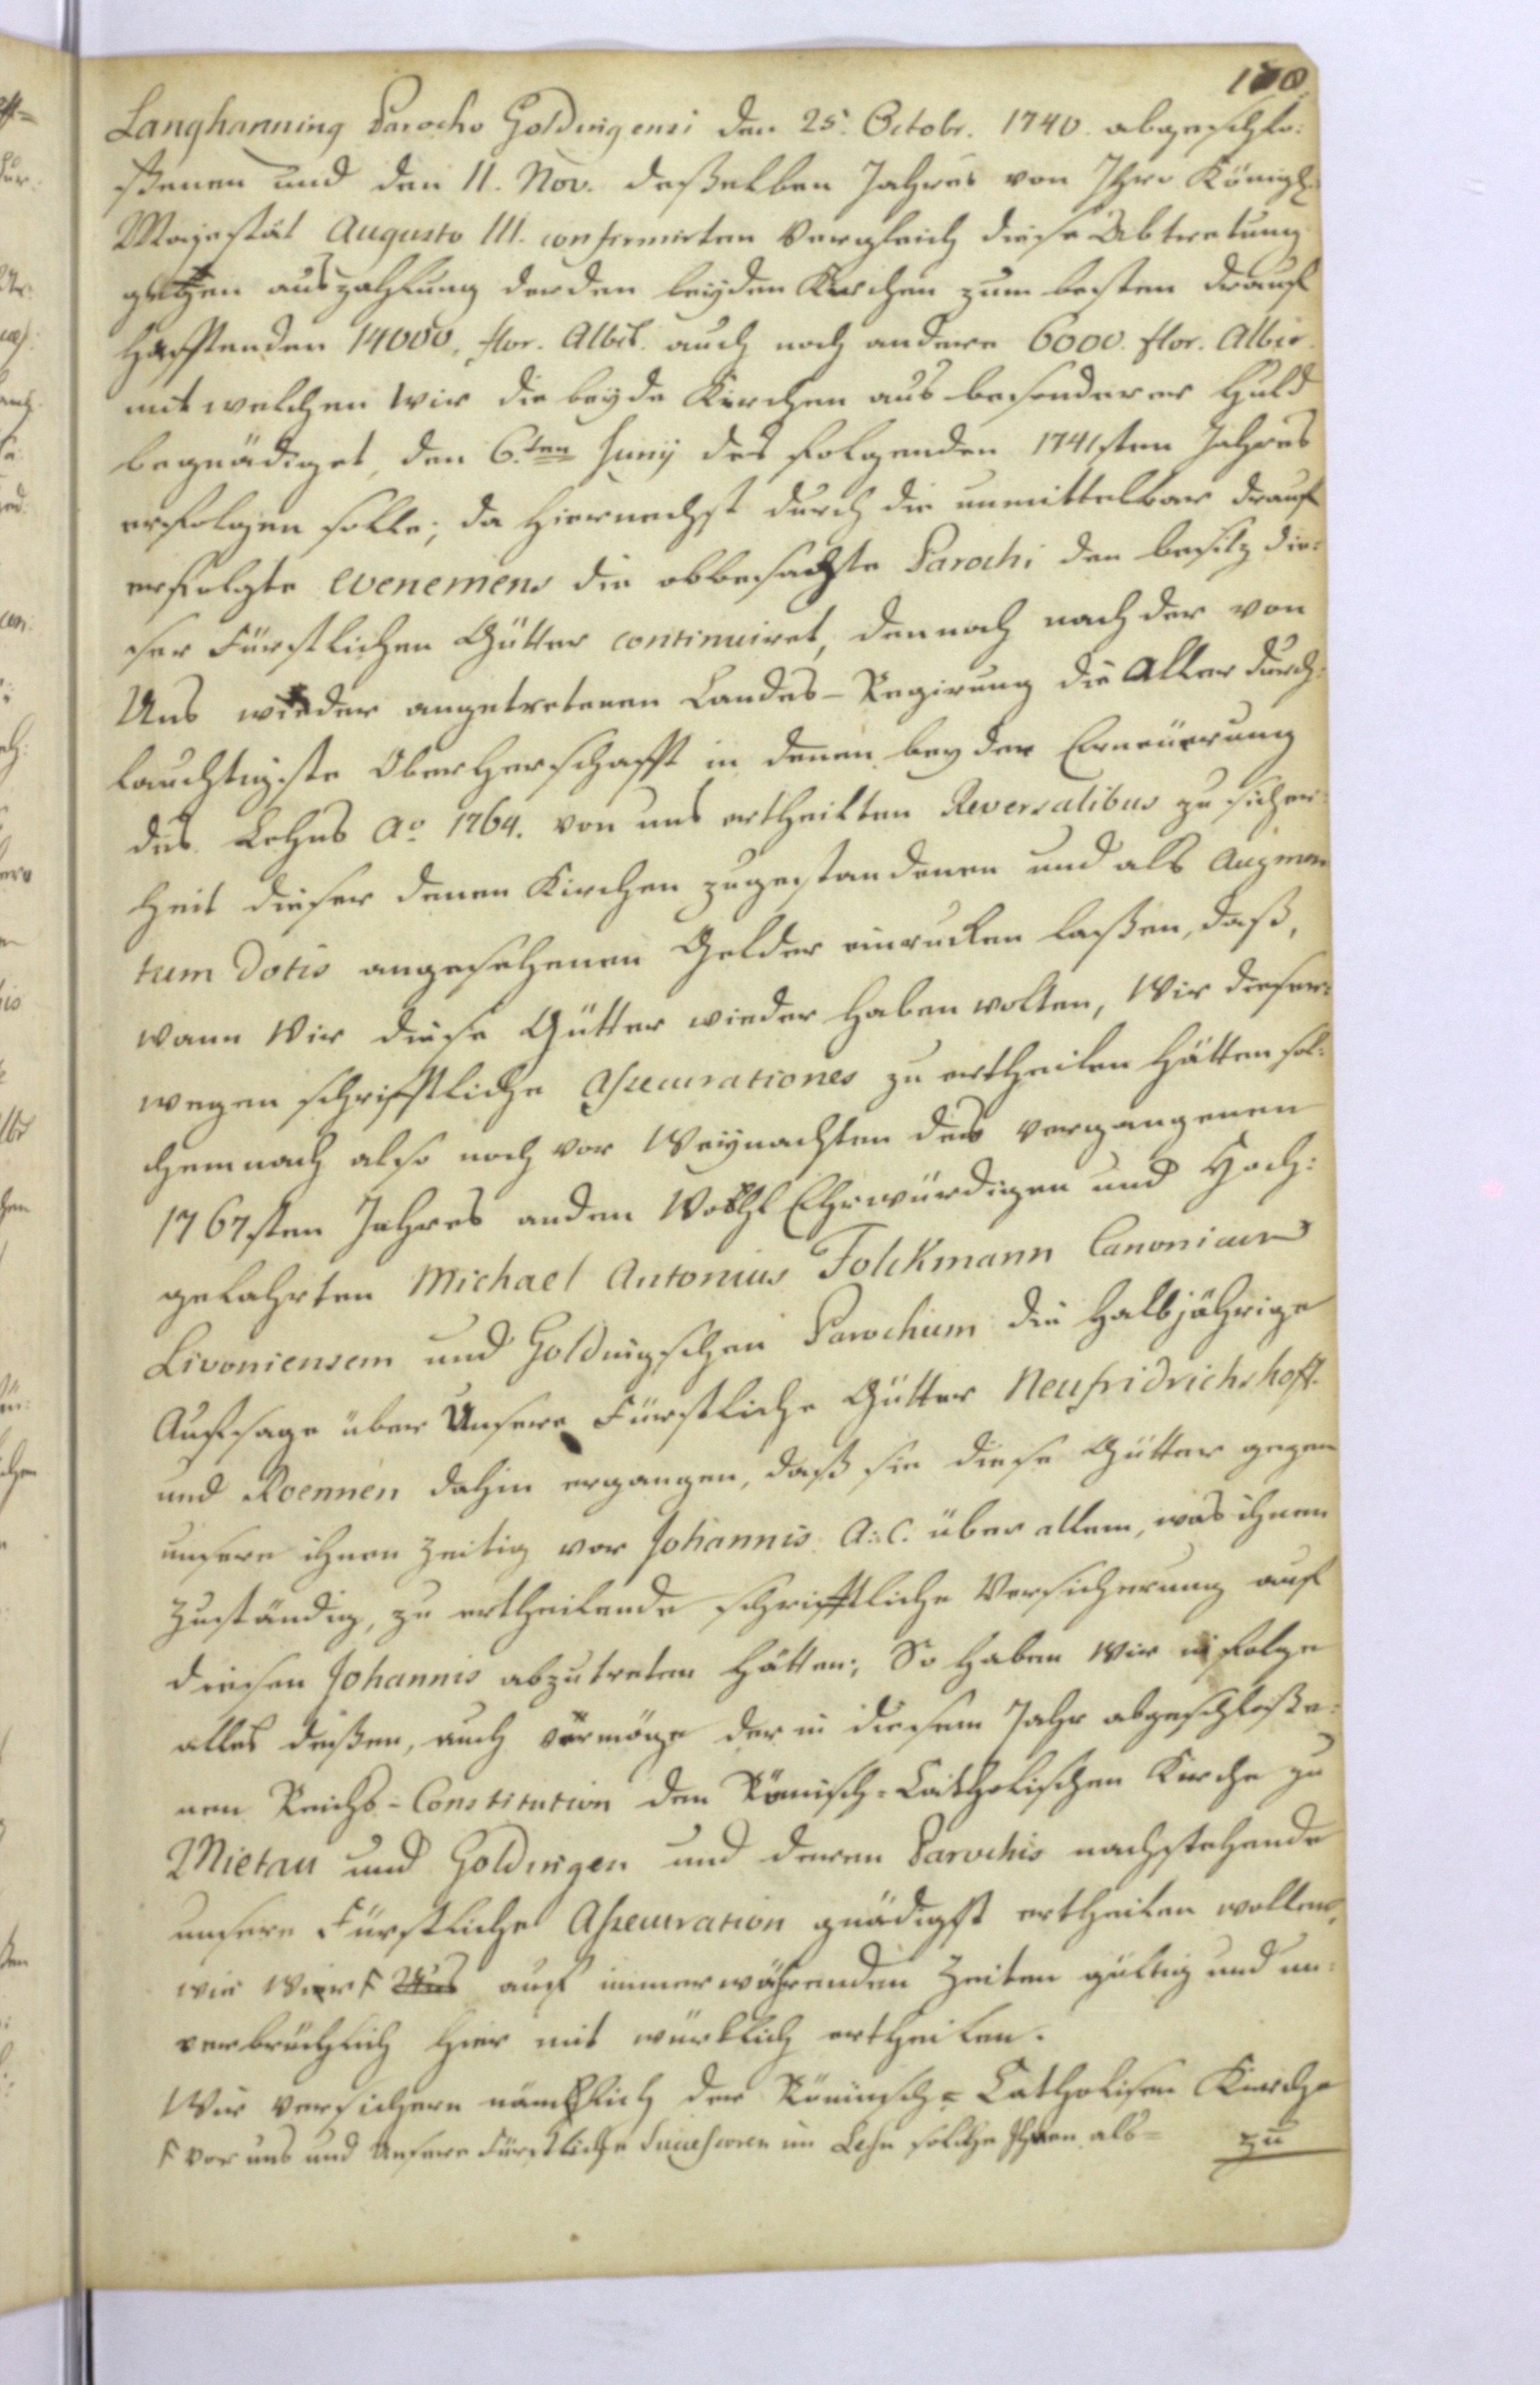 100.
Langhanning Parocho Goldingensi den 25. Octobr. 1740. abgeschlo:
ßenen und den 11. Nov. deßelben Jahres von Ihro Königl:
Majestät Augusto III. confirmirten Vergleich diese Abtretung
gegen auszahlung derden beyden Kirchen zum besten drauf
hafftenden 14000. flor. Albt. auch noch andere 6000. flor. Alber.
mit welchen Wir die beyde Kirchen aus besonderer Huld
begnädiget, den 6.ten Juny des folgenden 1741sten Jahres
erfolgen solle; da hiernechst durch die unmittelbar drauf
erfolgte evenemens die obbesachte Parochi den besitz die:
ser Fürstlichen Gütter continuiret, dennoch nach der von
Uns wieder angetretenen Landes-Regirung die Aller durch:
lauchtigste Oberherschafft in denen bey der Erneüerung
des Lehns Ao 1764. von uns ertheilten Reversalibus zu sicher:
heit dieser denen Kirchen zugestandenen und als Augmen
tum Dotis angesehenen Gelder einrucken laßen, daß,
wann Wir diese Gütter wieder haben wolten, Wir dieser:
wegen schrifftliche Assecurationes zu ertheilen hätten sol:
chemnach also noch vor Weynachten des vergangenen
1767sten Jahres an den Wohl Ehrwürdigen und Hoch:
gelahrten Michael Antonius Folckmann Canonicum
Livoniensem und Goldingschen Parochum die halbjährige
Aufsage über Unsere Fürstliche Gütter Neufridrichshoff
und Roennen dahin ergangen, daß sie diese Gütter gegen
unsere ihnen zeitig vor Johannis A: C. über allem, was ihnen
zuständig, zu ertheilende schrifftliche Versicherung auf
diesen Johannis abzutreten hätten; So haben Wir in folge
alles deßen, auch vermöge der in diesem Jahr abgeschloße:
nen Reichs-Constitution den Römisch-Catholischen Kirche zu
Mietau und Goldingen und deren Parochis nachstehende
unsere Fürstliche Assecuration gnädigst ertheilen wollen,
wie Wir F Uns auf immerwährenden Zeiten gültig und un:
verbrüchlich hier mit würklich ertheilen.
Wir versichern nämlich der Römisch-Catholisen Kirche
F vor uns und Unsere Fürstliche Successoren im Lehn solche Ihnen als=
zu